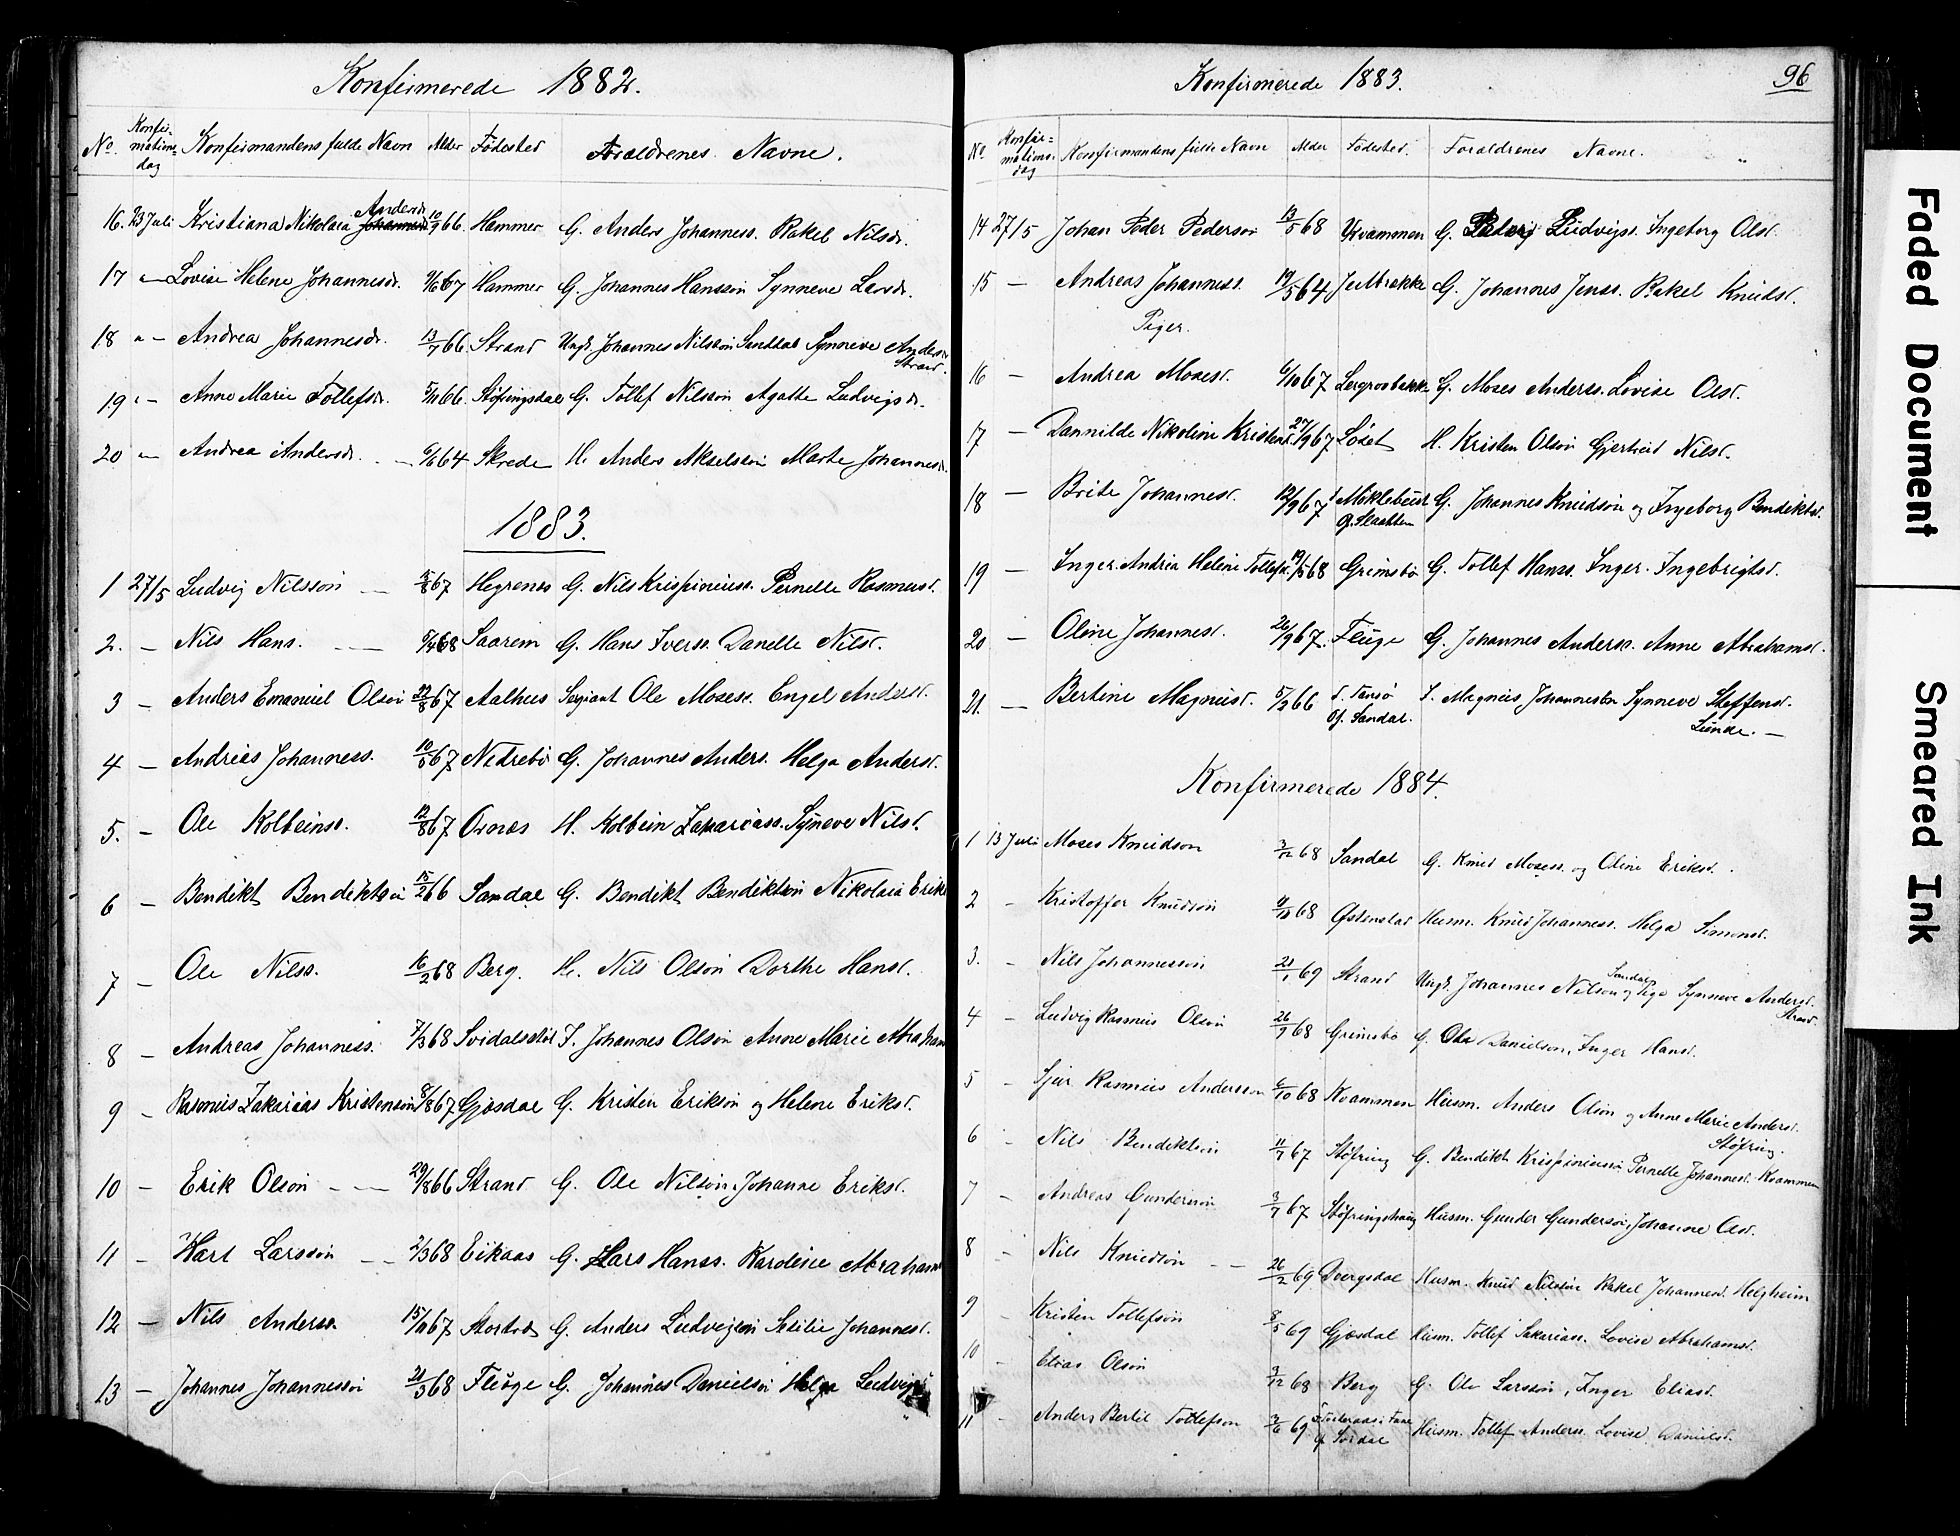 Konfirmerede 1882.
No. Konfir-mations-dag Konfirmandens fulde Navn Alder Fødested Forældrenes Navne.
16. 23 Juli Kristiana Nikolaia Andersd. 10/9 66. Hammer G. Anders Johanness. Rakel Nilsd.
17 " Lovise Helene Johannesd. 67 Hammer G. Johannes Hansson Synneve Larsd.
18 " Andrea Johannesd. 13/7 66. Strand Ungk. Johannes Nilsson Sanddal Synneve Andersd.
Strand.
19 " Anne Marie Tollefsd. 5/11 66. Støfringsdal G. Tollef Nilsson Agatte Ludvigsd.
20 " Andrea Andersd. 6/6 64 Skrede H. Anders Akselsson Marte Johannesd.
1883.
1 27/5 Ludvig Nilsson 5/8 67 Hegrenes G. Nils Krispiniuss. Pernelle Rasmusd.
2. — Nils Hans. 5/4 68 Saarem G. Hans Iverss. Danelle Nilsd.
3 — Anders Emanuel Olson 22/8 67 Aalhus Sergiant Ole Moses. Engel Andersd.
4 — Andreas Johanness. 10/5 67 Nedrebø G. Johannes Anders. Helga Andersd.
5. — Ole Kolbeinss. 12/8 67 Ornæs H. Kolbein Zakariass. Synneve Nilsd.
6 — Bendikt Bendiktson 15/2 66 Sandal G. Bendikt Bendiktson Nikolaia Erik
7 — Ole Nilss. 16/2 68 Berg. H. Nils Olson Dorthe Hansd.
8 — Andreas Johanness. 7/3 68 Svidalsstøl I. Johannes Olson Anne Marie Abraham
9 — Rasmus Zakarias Kristenson 8/8 67 Gjøsdal G. Kristen Erikson og Helene Eriksd.
10 — Erik Olson 29/8 66 Strand G. Ole Nilson, Johanne Eriksd.
11 — Karl Larsson 2/3 68 Eikaas G. Lars Hanss. Karoline Abraham
12 — Nils Anderss. 15/11 67 G. Anders Ludvigson Johannesd.
13 — Johannes Johannesson 21/3 68 Fluge G. Johannes Danielson Helga Ludvigs
Konfirmerede 1883. 96
No Konfir-mations-dag Konfirmandens fulde Navn Alder Fødested. Forældrenes Navne.
14 27/5 Johan Peder Pederson 13/5 68 Kvammen G. Peder Ludvigss. Ingeborg Olsd.
15 — Andreas Johanness. 19/5 64 G. Johannes Jenss. Rakel Knudsd.
Piger.
16 — Andrea Mosesd. 6/10 67 G. Moses Anderss. Lovise Olsd.
17 — Dannilde Nikoline Kristensd. 27/9 67 Løset H. Kristen Olson Gjertrud Nilsd.
18 — Brite Johannesd. 12/9 67 Møklebust G. Johannes Knudson og Ingeborg Bendiktsd.
19 — Inger Andrea Helene Tollefsd. 19/5 68 Grimsbø G. Tollef Hanss. Inger Ingebrigtsd.
20 — Oline Johannesd. 26/9 67. Fluge G. Johannes Anderss. Anne Abrahamsd.
21. — Bertine Magnusd. 5/2 66 I. Magnus Johannesson Synneve Steffensd.
of. Sandal. Lunde. —
Konfirmerede 1884.
1 13 Juli Moses Knudson 3/12 68 Sandal G. Knud Mosess. og Oline Eriksd.
2 — Kristoffer Knudson 68 Østenstad Husm. Knud Johanness. Helga Simonsd.
3. — Nils Johannesson 21/1 69 Strand Ungk. Johannes Nilson Sandal og Pige Synneve Andersd.
Strand.
4 — Ludvig Rasmus Olson 26/9 68 Grimsbø G. Ola Danielson, Inger Hansd.
5 — Sjur Rasmus Andersson 6/10 68 Kvammen Husm. Anders Olson og Anne Marie Andersd.
Støfring.
6 — Nils Bendiktson 11/7 67 Støfring G. Bendikt Krispiniusson Pernelle Johannesd. Kvammen
7 — Andreas Gunderson 3/7 67 Støfringshaug Husm. Gunder Gunderson, Johanne Olsd.
8 — Nils Knudson 26/2 69 Dvergsdal Husm. Knud Nilsson Rakel Johannesd. Helgheim
9 — Kristen Tollefson 8/5 69 Gjøsdal Husm. Tollef Sakariass. Lovise Abrahamsd.
10 — Elias Olson 3/12 68 Berg G. Ole Larsson, Inger Eliasd.
11 — Anders Bertil Tollefson 3/6 69 Husm. Tollef Anderss. Lovise Danielsd.
Faded Document
Smeared Ink